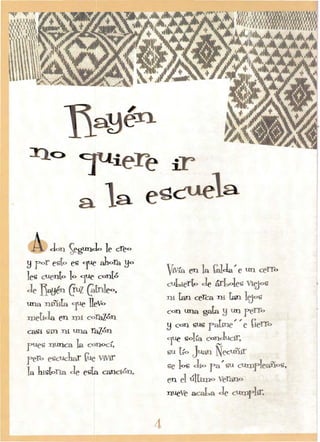 Rayén
no quiere ir
a la escuela
A don Segundo le creo
y por esto es que ahora yo
les cuento lo que contó
de Rayén Cruz Catrileo,
una niñita que llevo
metida en mi corazón
casi sin ni una razón
pues nunca la conocí,
pero escuchar fue vivir
la historia de esta canción.
Vivía en la falda 'e un cerro
cubierto de árboles viejos
ni tan cerca ni tan lejos
con una gata y un perro
y con sus patine' 'e fierro
que solía conducir,
su tío Juan Ñecuñir
se los dio pa' su cumpleaños,
en el último verano
nueve acaba de cumplir.
4